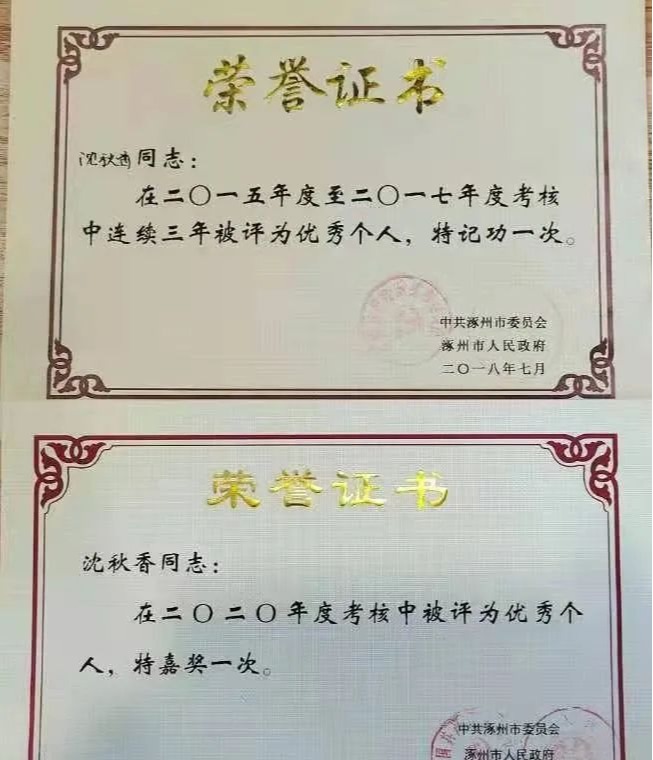 荣誉证书
沈秋香同志：
在二〇一五年度至二〇一七年度考核
中连续三年被评为优秀个人，特记功一次。
中共涿州市委员会
涿州市人民政府
二〇一八年七月
荣誉证书
沈秋香同志：
在二〇二〇年度考核中被评为优秀个
人，特嘉奖一次。
中共涿州市委员会
涿州市人民政府